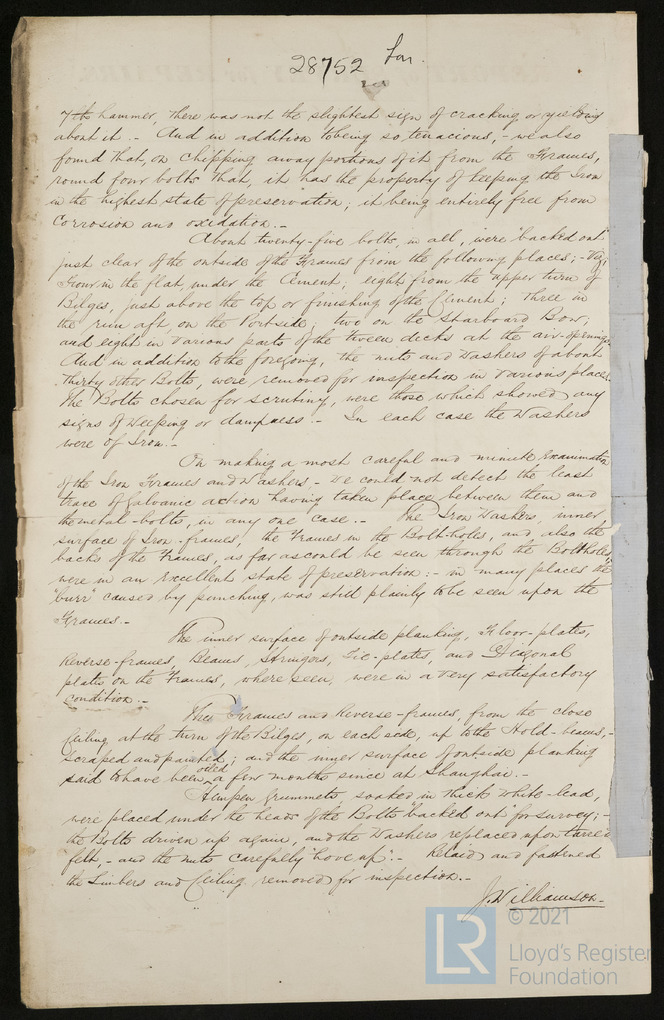 28752 Lon.
of the hammer, there was not the slightest sign of cracking or yielding
about it. - And in addition to being so tenacious, - we also
found that, on chipping away portions of it from the Frames,
round four bolts that, it has the property of keeping the Iron
in the highest state of preservation; it being entirely free from
Corrosion and oxidation. -
About twenty-five bolts, in all, were "backed out"
just clear of the outside of the Frames from the following places; - Viz,
Four in the flat, under the Cement; eight from the upper turn of
Bilges, just above the top or finishing of the Cement; three in
the run aft, on the Portside; two on the Starboard Bow;
and eight in various parts of the 'tween decks at the air-openings.
And in addition to the foregoing, the nuts and Washers of about
thirty other Bolts, were removed for inspection in various places.
The Bolts chosen for scrutiny, were those which showed any
signs of weeping or dampness. - In each case the Washers
were of Iron. -
On making a most careful and minute examination
of the Iron Frames and Washers, - we could not detect the least
trace of Galvanic action having taken place between them and
the metal-bolts, in any one case. - The Iron Washers, inner
surface of Iron-frames, the Frames in the Bolt-holes, and also the
backs of the Frames, as far as could be seen through the Boltholes,
were in an excellent state of preservation: - in many places the
"burr" caused by punching, was still plainly to be seen upon the
Frames. -
The inner surface of outside planking, Floor-plates,
Reverse-frames, Beams, Stringers, Tie-plates, and Diagonal
plates on the Frames, where seen, were in a very satisfactory
condition. -
The Frames and Reverse-frames, from the close
Ceiling at the turn of the Bilges, on each side, up to the Hold-beams, -
scraped and painted; and the inner surface of outside planking
said to have been oiled a few months since at Shanghai. -
Hempen Grummets soaked in thick White-lead,
were placed under the heads of the Bolts "backed out" for survey; -
the Bolts driven up again, and the Washers replaced upon tarred
felt, - and the nuts carefully "hove up". - Relaid and fastened
the Limbers and Ceiling removed for inspection. -
J. Williamson -
LR
© 2021
Lloyd's Register
Foundation